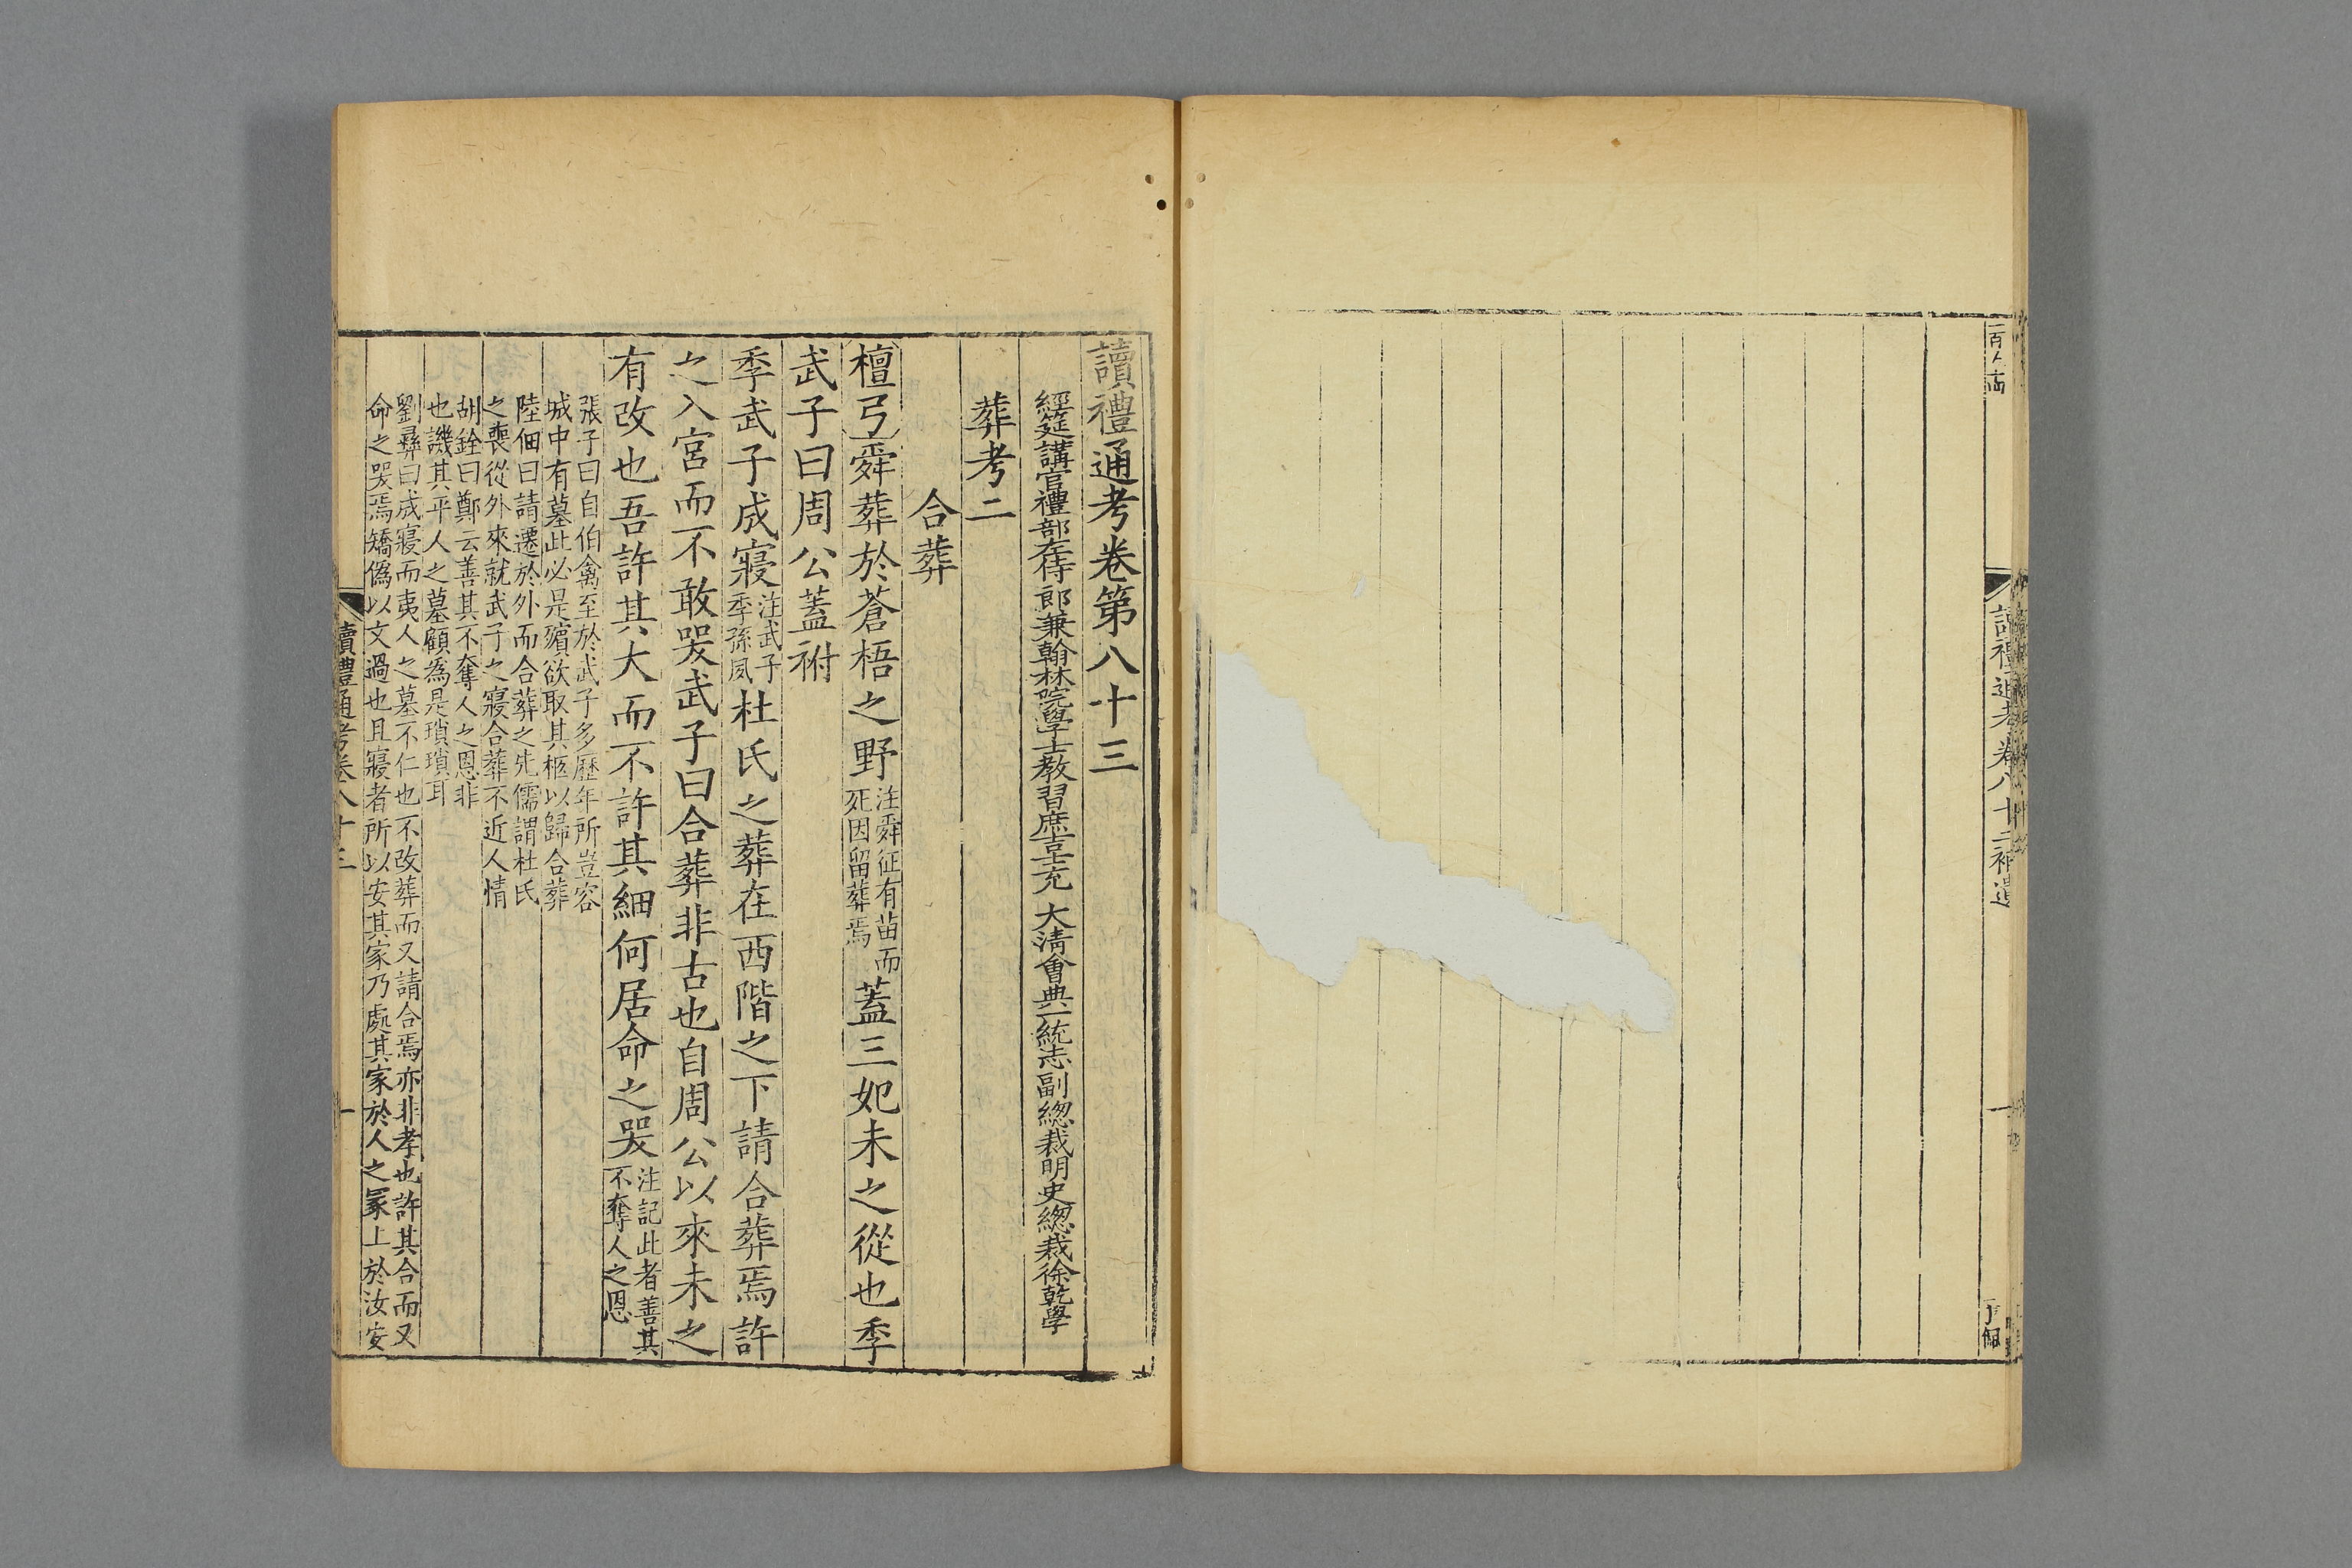 讀禮通考卷八十二補遺
一
讀禮通考卷第八十三
經筵講官禮部左侍郎兼翰林院學士教習庶吉士充 大清會典一統志副總裁明史總裁徐乾學
葬考二
合葬
檀弓舜葬於蒼梧之野注舜征有苗而死因留葬焉蓋三妃未之從也季
武子曰周公蓋祔
季武子成寢注武子季孫夙杜氏之葬在西階之下請合葬焉許
之入宮而不敢哭武子曰合葬非古也自周公以來未之
有改也吾許其大而不許其細何居命之哭注記此者善其不奪人之恩
張子曰自伯禽至於武子多歷年所豈容
城中有墓此必是殯欲取其柩以歸合葬
陸佃曰請遷於外而合葬之先儒謂杜氏
之喪從外來就武子之寢合葬不近人情
胡銓曰鄭云善其不奪人之恩非
也譏其平人之墓顧為是瑣瑣耳
劉彝曰成寢而夷人之墓不仁也不改葬而又請合焉亦非孝也許其合而又
命之哭焉矯僞以文過也且寢者所以安其家乃處其家於人之冢上於汝安
讀禮通考卷八十三
一